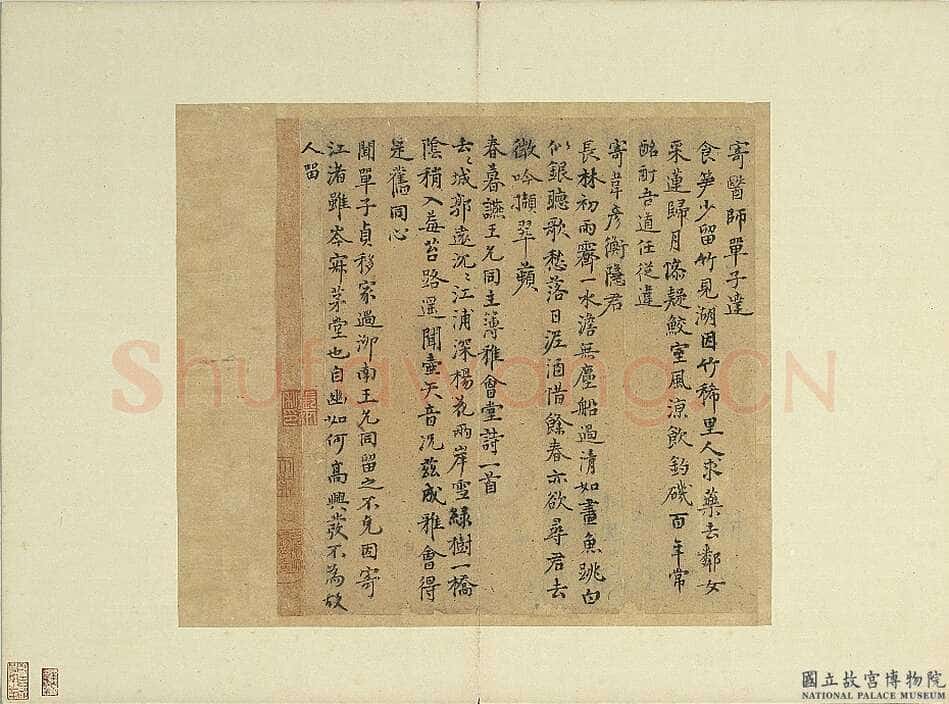 寄醫師單子達
食笋少留竹見湖因竹稀里人求藥去鄰女
采蓮歸月條疑鮫室風涼飲釣磯百年常
酩酊吾道任從違
寄韋彥衡隱君
長林初雨霽一水澹無塵船過清如畫魚跳白
似銀聽歌愁落日 酒惜餘春亦欲尋君去
微吟擷翠蘋
春暮讌王允同主簿雅會堂詩一首
去〻城郭遠沉〻江浦深楊花兩岸雪綠樹一橋
陰稍入莓苔路遥聞壺矢音况茲成雅會得
是舊同心
聞單子貞移家過泖南王允同留之不克因寄
江渚雖岑寂茅堂也自幽如何高興發不為故
人留
Shufawang.CN
國立故宮博物院
NATIONAL PALACE MUSEUM